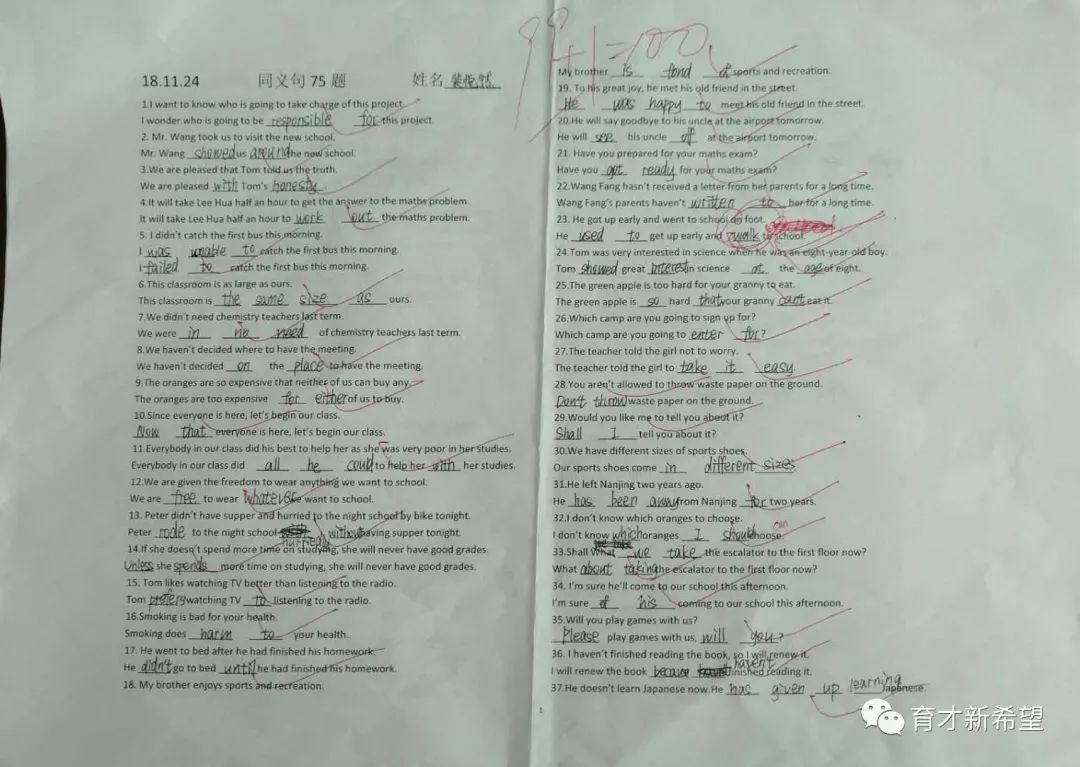 18.11.24 同义句 75 题 姓名
1.I want to know who is going to take charge of this project.
I wonder who is going to be responsible for this project.
2. Mr. Wang took us to visit the new school.
Mr. Wang showed us around the new school.
3.We are pleased that Tom told us the truth.
We are pleased with Tom's honesty.
4.It will take Lee Hua half an hour to get the answer to the maths problem.
It will take Lee Hua half an hour to work out the maths problem.
5. I didn't catch the first bus this morning.
I was unable to catch the first bus this morning.
I failed to catch the first bus this morning.
6.This classroom is as large as ours.
This classroom is the same size as ours.
7.We didn't need chemistry teachers last term.
We were in no need of chemistry teachers last term.
8.We haven't decided where to have the meeting.
We haven't decided on the place to have the meeting.
9.The oranges are so expensive that neither of us can buy any.
The oranges are too expensive for either of us to buy.
10.Since everyone is here, let's begin our class.
Now that everyone is here, let's begin our class.
11.Everybody in our class did his best to help her as she was very poor in her studies.
Everybody in our class did all he could to help her with her studies.
12.We are given the freedom to wear anything we want to school.
We are free to wear whatever we want to school.
13. Peter didn't have supper and hurried to the night school by bike tonight.
Peter rode to the night school hurriedly without having supper tonight.
14.If she doesn't spend more time on studying, she will never have good grades.
Unless she spends more time on studying, she will never have good grades.
15. Tom likes watching TV better than listening to the radio.
Tom prefers watching TV to listening to the radio.
16.Smoking is bad for your health.
Smoking does harm to your health.
17. He went to bed after he had finished his homework.
He didn't go to bed until he had finished his homework.
18. My brother enjoys sports and recreation.
99+1=100
My brother is fond of sports and recreation.
19. To his great joy, he met his old friend in the street.
He was happy to meet his old friend in the street.
20.He will say goodbye to his uncle at the airport tomorrow.
He will see his uncle off at the airport tomorrow.
21. Have you prepared for your maths exam?
Have you got ready for your maths exam?
22.Wang Fang hasn't received a letter from her parents for a long time.
Wang Fang's parents haven't written to her for a long time.
23. He got up early and went to school on foot.
He used to get up early and walk to school.
24.Tom was very interested in science when he was an eight-year-old boy.
Tom showed great interest in science at the age of eight.
25.The green apple is too hard for your granny to eat.
The green apple is so hard that your granny can't eat it.
26.Which camp are you going to sign up for?
Which camp are you going to enter for?
27.The teacher told the girl not to worry.
The teacher told the girl to take it easy.
28.You aren't allowed to throw waste paper on the ground.
Don't throw waste paper on the ground.
29.Would you like me to tell you about it?
Shall I tell you about it?
30.We have different sizes of sports shoes.
Our sports shoes come in different sizes.
31.He left Nanjing two years ago.
He has been away from Nanjing for two years.
32.I don't know which oranges to choose.
I don't know which oranges I should choose. can
33.Shall we take the escalator to the first floor now?
What about taking the escalator to the first floor now?
34. I'm sure he'll come to our school this afternoon.
I'm sure of his coming to our school this afternoon.
35.Will you play games with us?
Please play games with us, will you?
36. I haven't finished reading the book, so I will renew it.
I will renew the book because haven't finished reading it.
37.He doesn't learn Japanese now.He has given up learning Japanese.
1
育才新希望